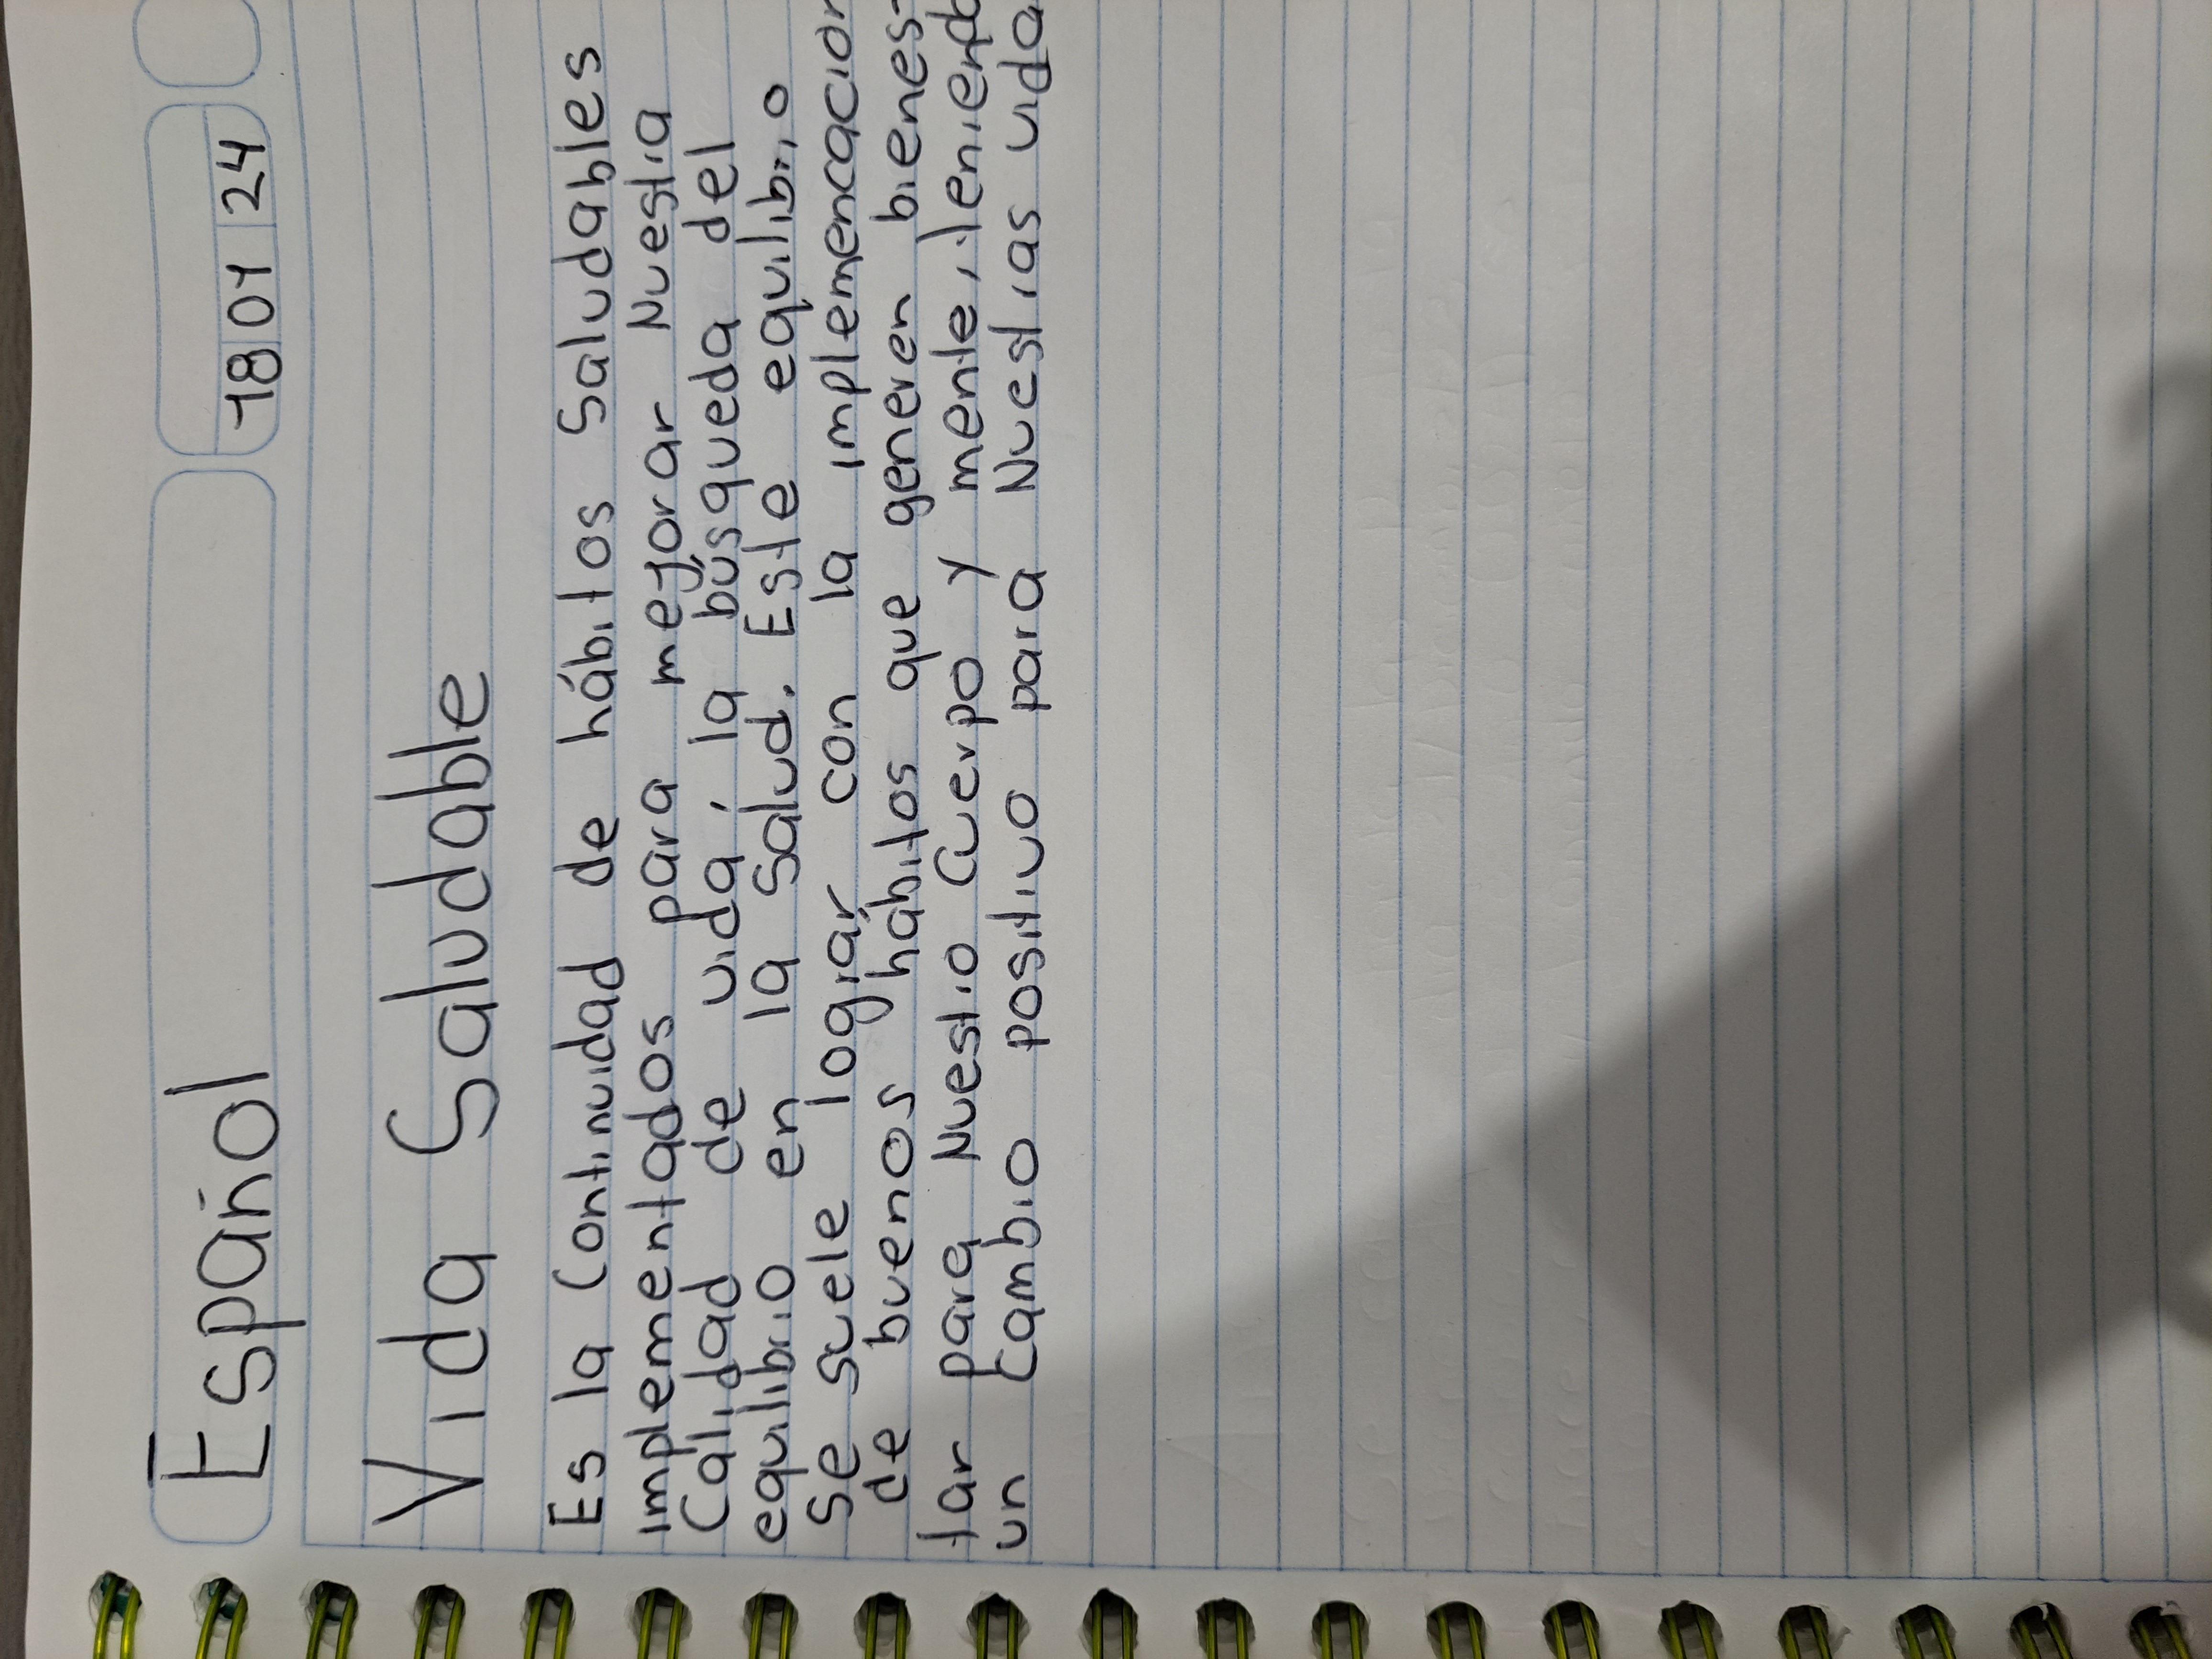 Español
18 01 24
Vida Saludable
Es la Continuidad de hábitos Saludables
implementados para mejorar Nuestra
Calidad de vida, la búsqueda del
equilibrio en la Salud. Este equilibrio
Se suele lograr con la implemencacion
de buenos hábitos que generen bienes-
tar para Nuestro Cuerpo y mente, teniendo
un Cambio positivo para Nuestras vida